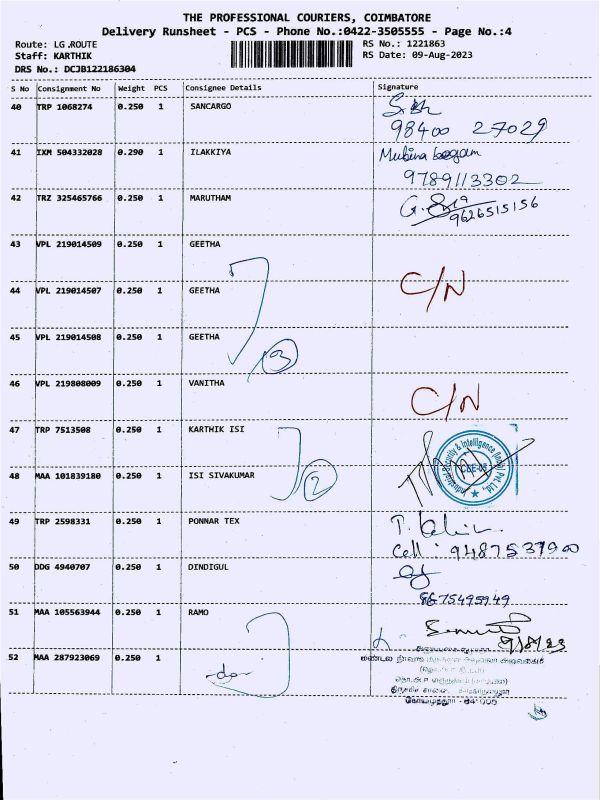 THE PROFESSIONAL COURIERS, COIMBATORE
Delivery Runsheet - PCS - Phone No.:0422-3505555 - Page No.:4
Route: LG.ROUTE
RS No.: 1221863
Staff: KARTHIK
RS Date: 09-Aug-2023
DRS No.: DCJB122186304
S No Consignment No Weight PCS Consignee Details Signature
40 TRP 1068274 0.250 1 SANCARGO
98400 27029
41 IXM 504332028 0.290 1 ILAKKIYA Mubina begam
9789113302
42 TRZ 325465766 0.250 1 MARUTHAM
9626515156
43 VPL 219014509 0.250 1 GEETHA
44 VPL 219014507 0.250 1 GEETHA C/N
45 VPL 219014508 0.250 1 GEETHA
3
46 VPL 219808009 0.250 1 VANITHA
C/N
47 TRP 7513508 0.250 1 KARTHIK ISI
Industrial Security & Intelligence (India) Pvt. Ltd.
CBE-08
48 MAA 101839180 0.250 1 ISI SIVAKUMAR
2
49 TRP 2598331 0.250 1 PONNAR TEX
Cell: 9487537900
50 DDG 4940707 0.250 1 DINDIGUL
75495949
51 MAA 105563944 0.250 1 RAMO
9/8/23
52 MAA 287923069 0.250 1
-do-